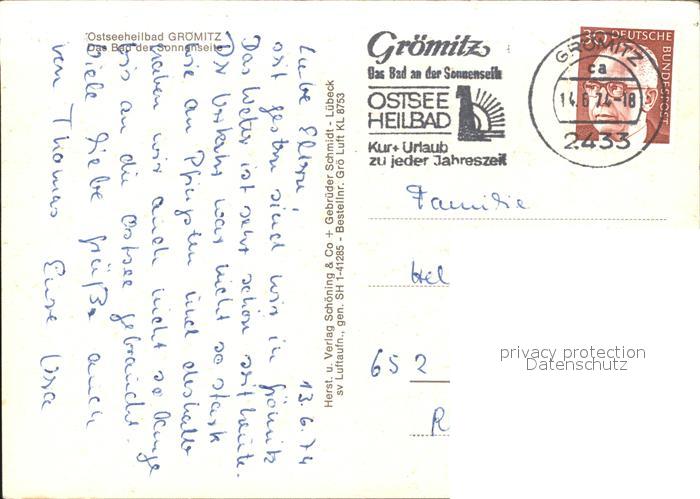 Ostseeheilbad GRÖMITZ
Das Bad der Sonnenseite
13.6.74
Liebe Eltern,
seit gestern sind wir in Grömitz
Das Wetter ist sehr schön seit heute.
Der Verkehr war nicht so stark
wie an Pfingsten und deshalb
haben wir auch nicht so lange
bis an die Ostsee gebraucht.
Viele liebe Grüße auch
von Thomas Eure
Herst. u. Verlag Schöning & Co + Gebrüder Schmidt - Lübeck
sv Luftaufn., gen. SH 1-41285 - Bestellnr. Grö Luft KL 8753
Grömitz
Das Bad an der Sonnenseite
OSTSEE
HEILBAD
Kur + Urlaub
zu jeder Jahreszeit
GRÖMITZ
ca
14.6.74-18
2433
30 DEUTSCHE
BUNDESPOST
Familie
Hel
652
R
privacy protection
Datenschutz